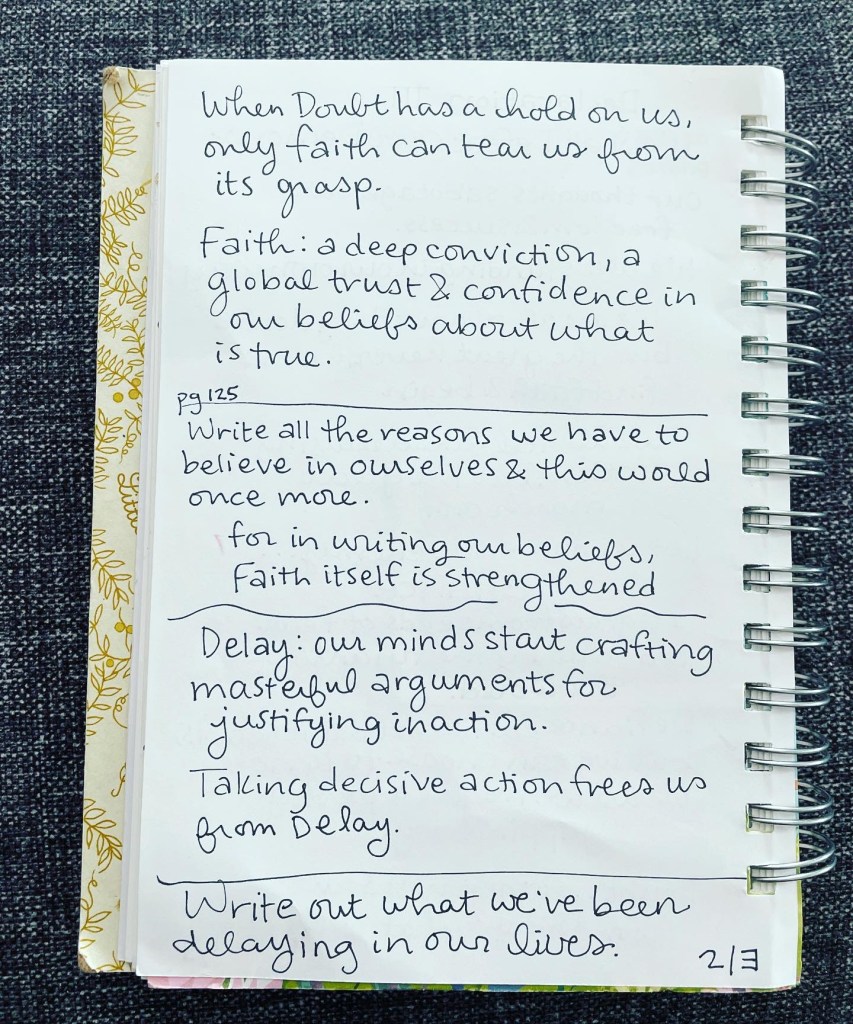 When Doubt has a hold on us,
only faith can tear us from
its grasp.
Faith: a deep conviction, a
global trust & confidence in
our beliefs about what
is true.
pg 125
Write all the reasons we have to
believe in ourselves & this world
once more.
for in writing our beliefs,
Faith itself is strengthened
Delay: our minds start crafting
masterful arguments for
justifying inaction.
Taking decisive action frees us
from Delay.
Write out what we've been
delaying in our lives.
2/3